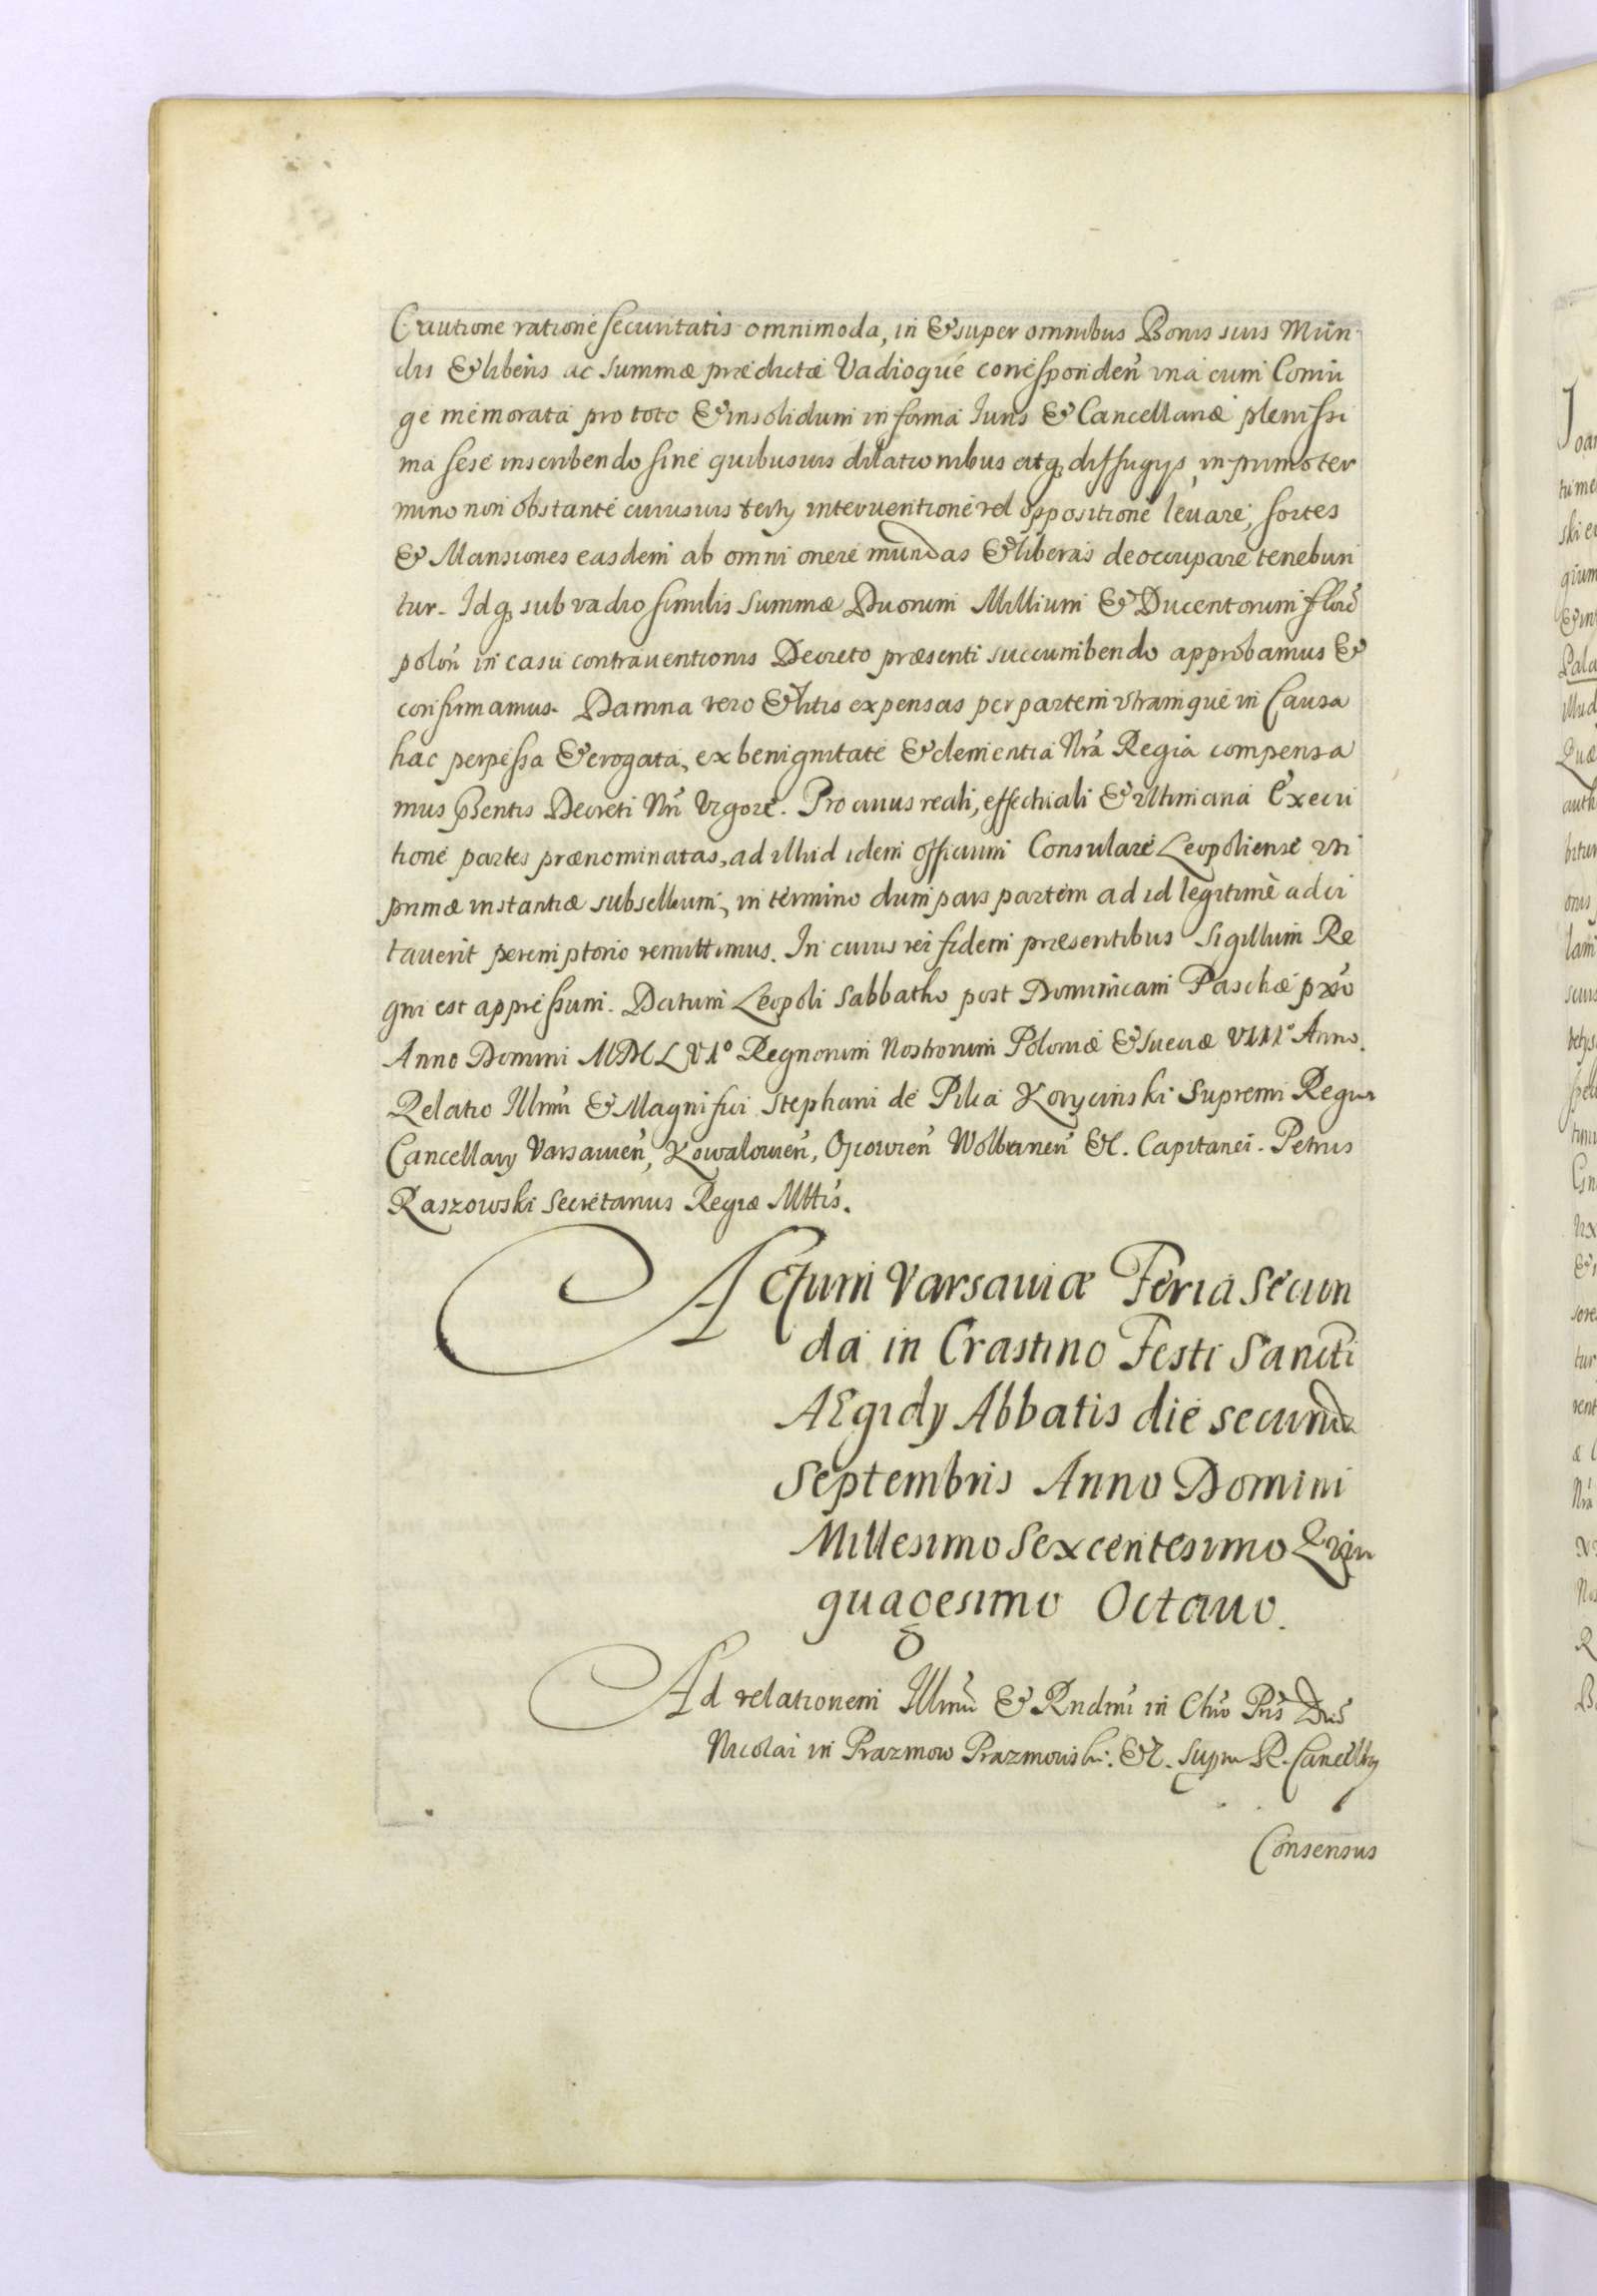 Cautione ratione securitatis omnimoda, in & super omnibus Bonis suis Mun-
dis & liberis ac summæ prædictæ Vadioque correspondeń vna cum Coniu
ge memorata pro toto & insolidum in forma Iuris & Cancellariæ plenissi
ma sese inscribendo sine quibusuis dilationibus atq, diffugijs, in primo ter
mino non obstante cuiusuis tertij interuentione vel oppositione leuare, sortes
& Mansiones easdem ab omni onere mundas & liberas deoccupare tenebun
tur. Idq, sub vadio similis summæ Duorum Millium & Ducentorum floŕ
poloń in casu contrauentionis Decreto præsenti succumbendo approbamus &
confirmamus. Damna vero & litis expensas per partem vtramque in Causa
hac perpessa & erogata, ex benignitate & clementia Nrá Regia compensa
mus pŝentis Decreti Nrí Vigore. Pro cuius reali, effectiuali & vltimaria Execu
tione partes prænominatas, ad illud idem officium Consulare Leopoliense vti
primæ instantiæ subsellium, in termino dum pars partem ad id legitimè adci
tauerit peremptorio remittimus. In cuius rei fidem præsentibus Sigillum Re
gni est appressum. Datum Leopoli Sabbatho post Dominicam Paschæ pxío
Anno Domini MDCLVIº Regnorum Nostrorum Poloniæ & Sueciæ VIIIº Anno.
Relatio Illmí & Magnifici Stephani de Pilca Korycinski Supremi Regni
Cancellarij Varsauień, Kowalouień, Ojcowień Wolbraneń &c. Capitanei. Petrus
Raszowski Secretarius Regiæ Mttis.
Actum Varsauiæ Feria Secun
da in Crastino Festi Sancti
AEgidy Abbatis die secunda
Septembris Anno Domini
Millesimo Sexcentesimo Quin
quagesimo Octauo.
Ad relationem Illmí & Rndmí in Chŕo Prís Dní
Nicolai in Prazmow Prazmowski. &c. Supr R. Cancellrij
Consensus